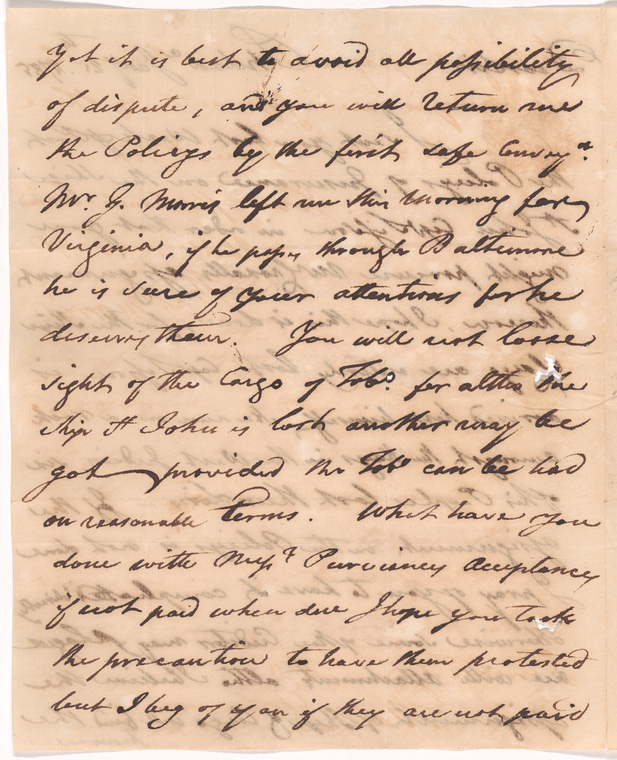 Yet it is best to avoid all possibility
of dispute, and you will return me
the Policys by the first safe Convey.ce
Mr. G. Morris left me this morning for
Virginia, if he passes through Baltimore
he is sure of your attentions for he
deserves them. You will not loose
sight of the Cargo of Tobo. for altho the
Ship St John is lost another may be
got provided the Tobo can be had
on reasonable terms. What have you
done with Messrs Purviances Acceptances
if not paid when due I hope you took
the precaution to have them protested
but I beg of you if they are not paid